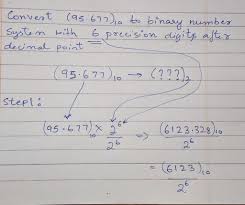 Convert (95.677)₁₀ to binary number
System with 6 precision digits after
decimal point
(95.677)₁₀ → (???)₂
Step1:
(95.677)₁₀ × 2⁶/2⁶ ⇒ (6123.328)₁₀/2⁶
= (6123)₁₀/2⁶